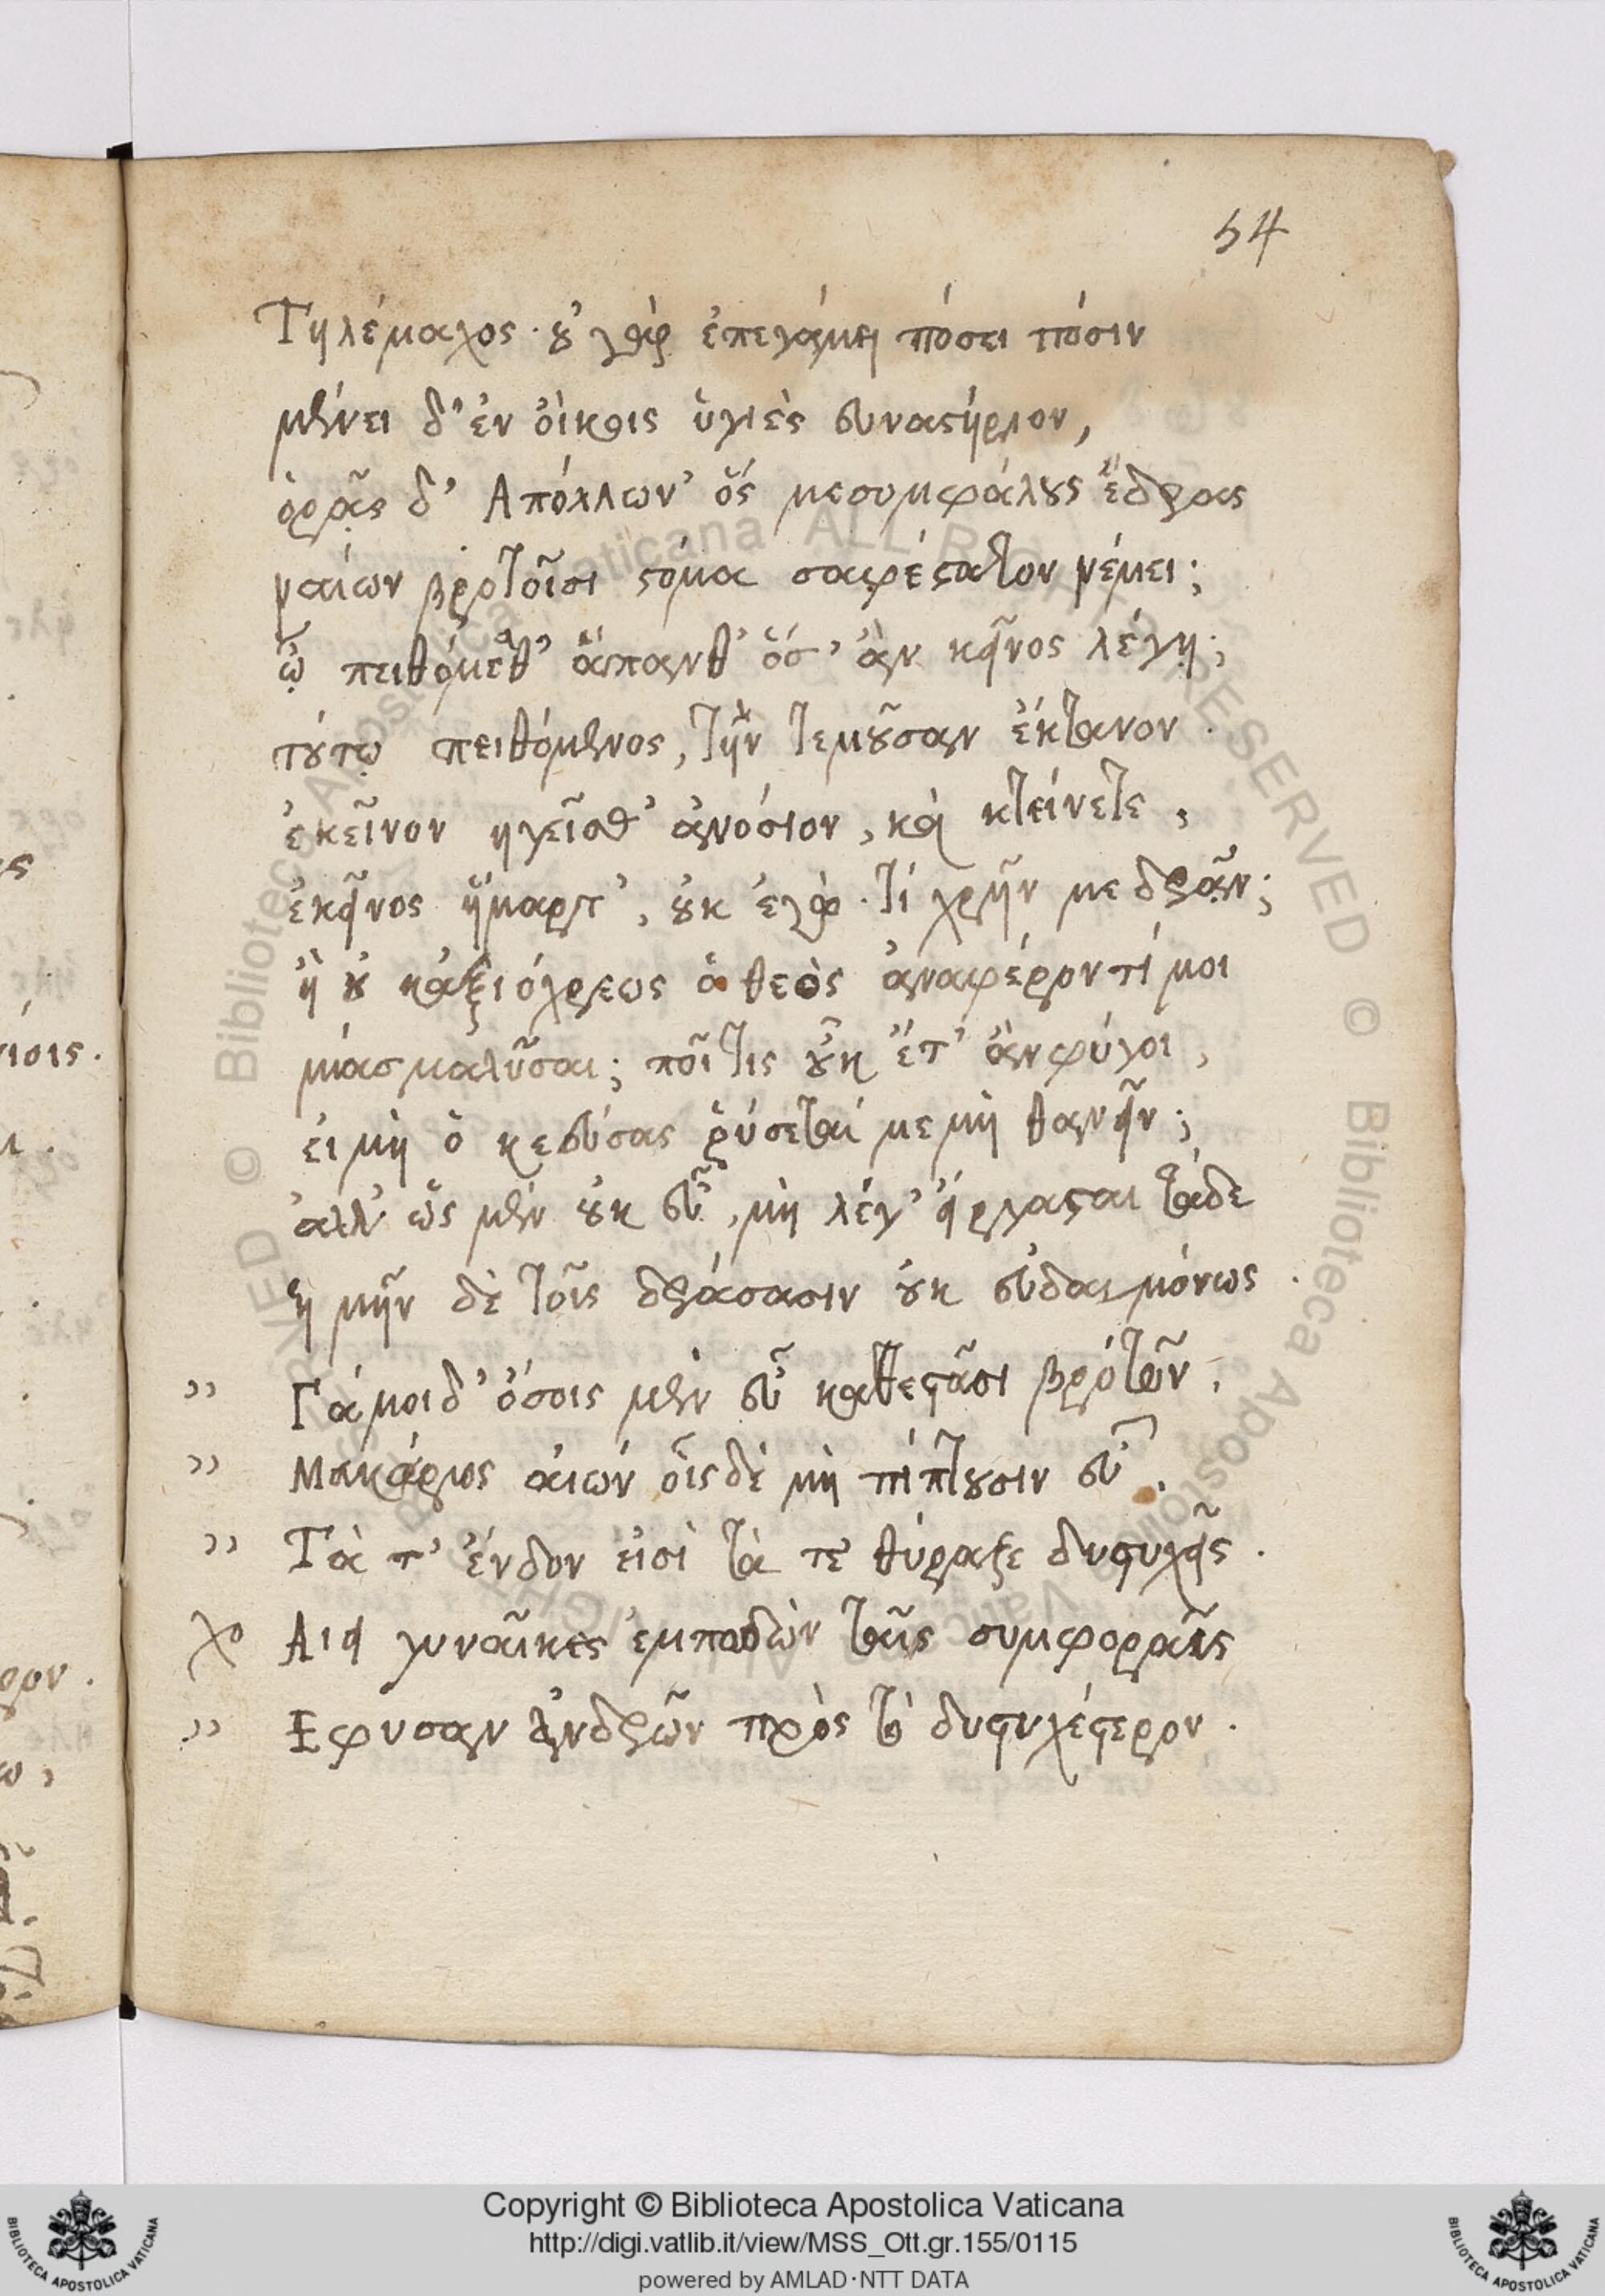 54
Τηλέμαχος · οὐ γὰρ ἐπεγάμει πόσει πόσιν
μένει δ' ἐν οἴκοις ὑγιὲς εὐναστήριον,
ὁρᾷς δ' Ἀπόλλων' ὅς μεσομφάλους ἕδρας
ναίων βροτοῖσι στόμα σαφέστατον νέμει;
ᾧ πειθόμεθ' ἅπανθ' ὅσ' ἂν κεῖνος λέγῃ;
τούτῳ πειθόμενος, τὴν τεκοῦσαν ἔκτανον.
ἐκεῖνον ἡγεῖσθ' ἀνόσιον, καὶ κτείνετε,
ἐκεῖνος ἥμαρτ', οὐκ ἐγώ. τί χρῆν με δρᾶν;
ἢ οὐ κἀξιόχρεως ὁ θεὸς ἀναφέροντί μοι
μίασμα λῦσαι; ποῖ τις οὖν ἔτ' ἂν φύγοι,
εἰ μὴ ὁ κελεύσας ῥύσεταί με μὴ θανεῖν;
ἀλλ' ὡς μὲν οὐκ εὖ, μὴ λέγ' εἴργασται τάδε
ἡμῖν δὲ τοῖς δράσασιν οὐκ εὐδαιμόνως.
,, Γάμοι δ' ὅσοις μὲν εὖ καθεστᾶσι βροτῶν,
,, Μακάριος αἰών οἷς δὲ μὴ πίπτουσιν εὖ.
,, Τά τ' ἔνδον εἰσὶ τά τε θύραζε δυστυχεῖς.
χο Αἰεὶ γυναῖκες ἐμποδὼν ταῖς συμφοραῖς
,, Εφυσαν ἀνδρῶν πρὸς τὸ δυστυχέστερον.
Copyright © Biblioteca Apostolica Vaticana
http://digi.vatlib.it/view/MSS_Ott.gr.155/0115
powered by AMLAD·NTT DATA
BIBLIOTECA APOSTOLICA VATICANA
BIBLIOTECA APOSTOLICA VATICANA